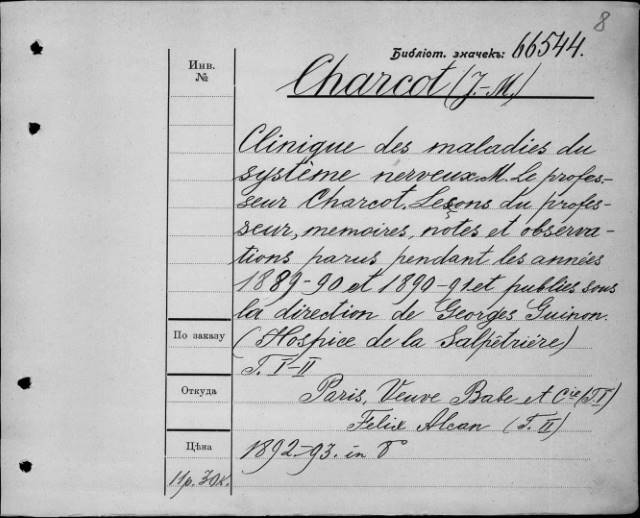 8
Библіот. значекъ: 66544.
Инв.
№
Charcot (J.-M.)
Clinique des maladies du
système nerveux. M. Le profes-
seur Charcot. Leçons du profes-
seur, memoires, notes et observa-
tions parus pendant les années
1889-90 et 1890-91 et publies sous
la direction de Georges Guinon.
(Hospice de la Salpêtrière)
По заказу
T. I-II
Откуда
Paris, Veuve Babe et Cie (T. I)
Felix Alcan (T. II)
Цѣна
1892-93. in 8
11р. 30к.